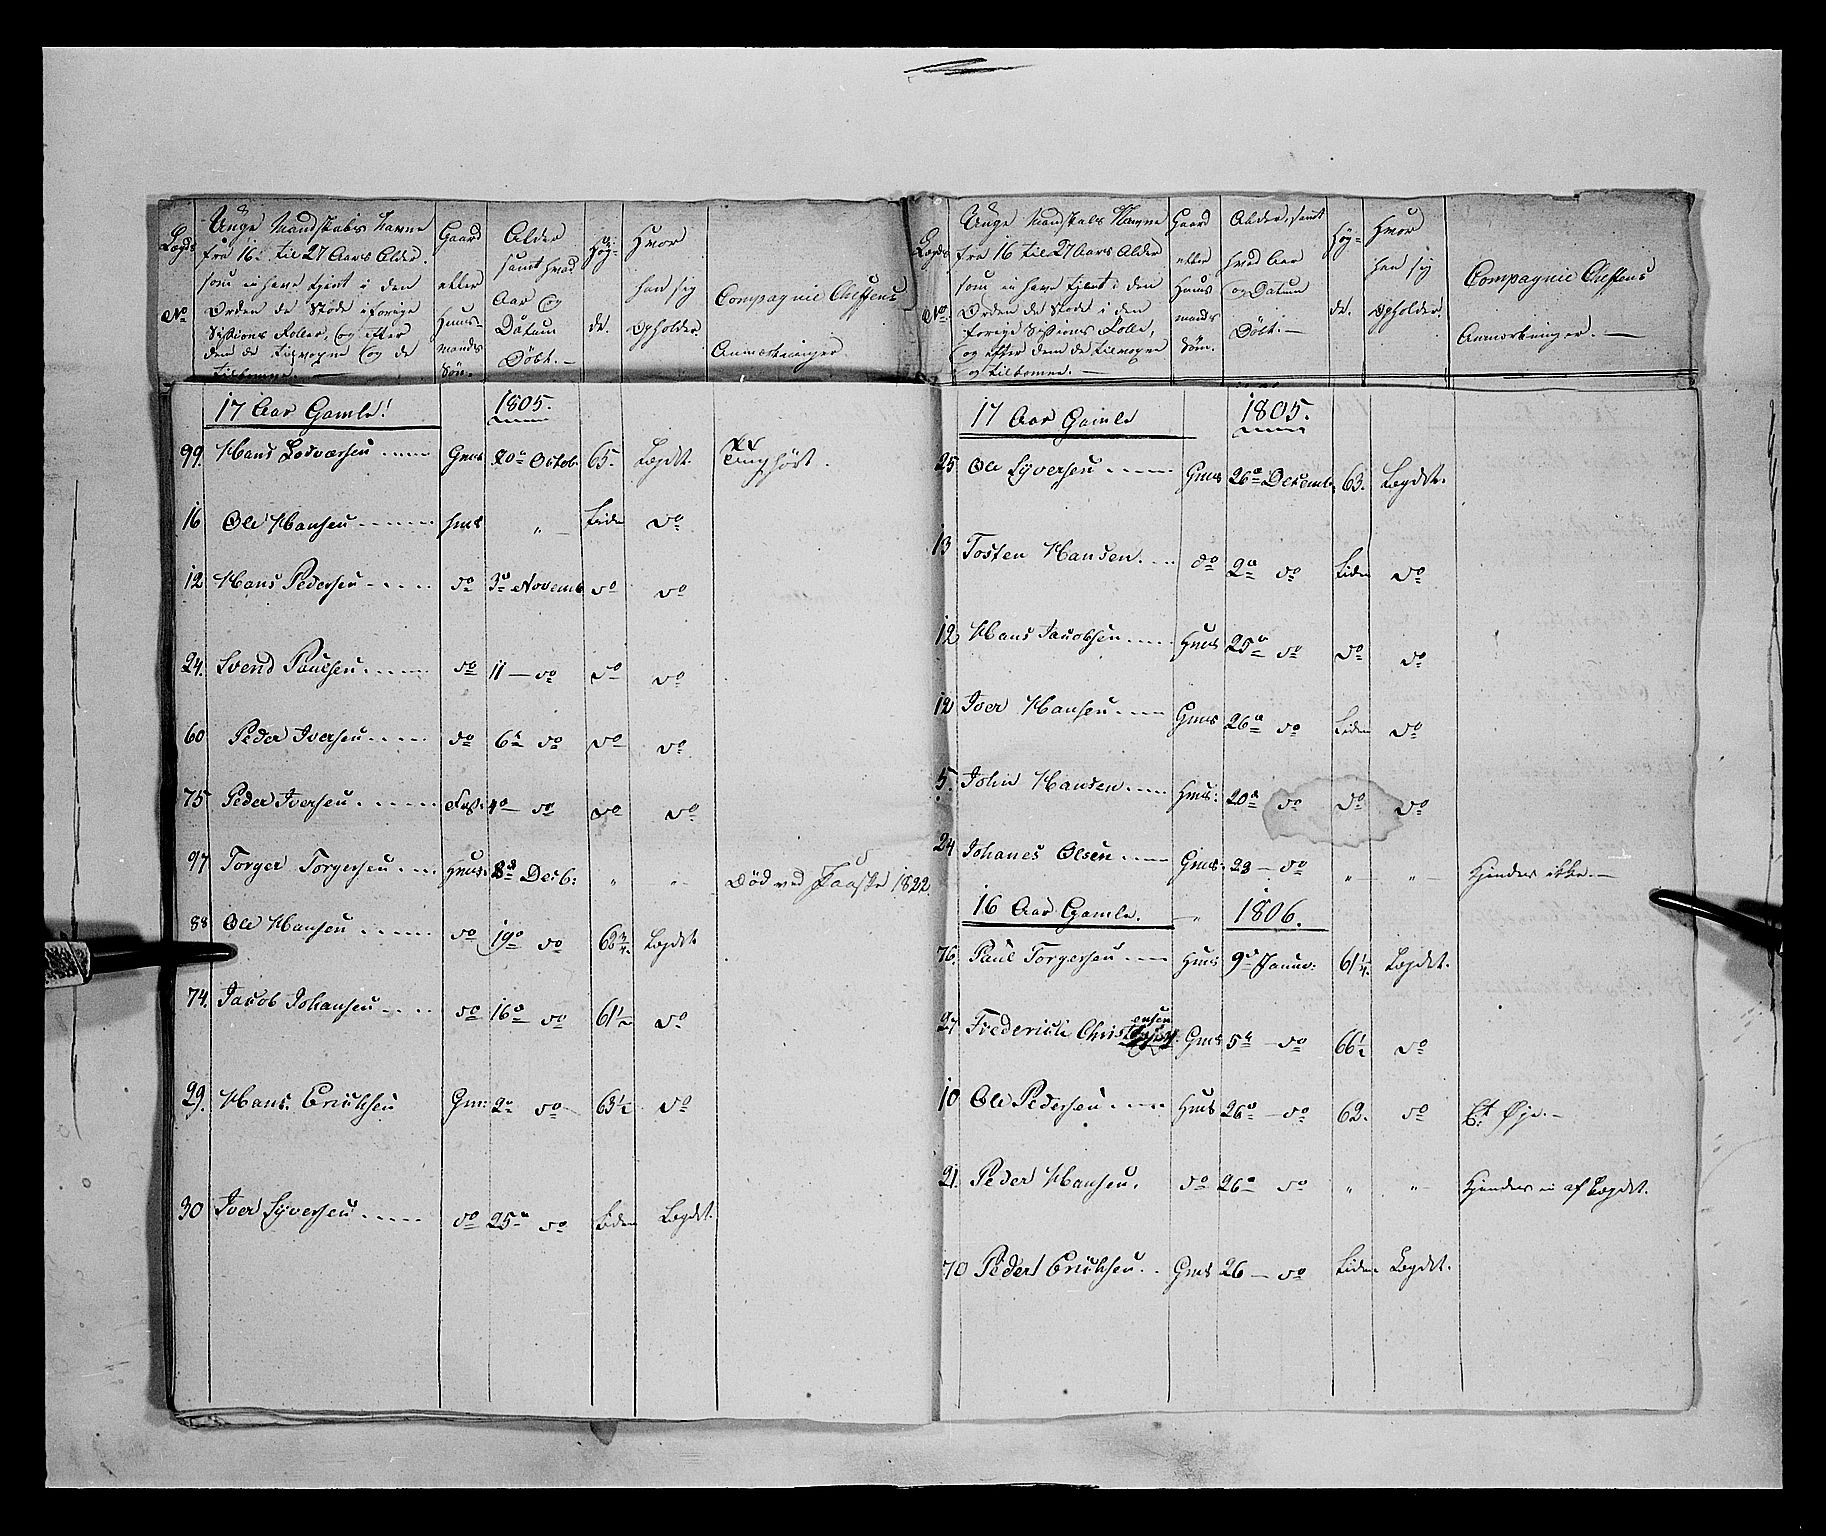 Lægds
No
Unge Mandskabs Navne
fra 16 til 27 Aars Alder
som ei have tjent i den
Orden de stode i forige
Sessions Roller, og efter
dem de tilvoxne og de
tilkomne. —
Gaard
eller
Huus-
mands
Søn.
Alder
samt hvad
Aar og
Datum
Døbt. —
Høy-
de.
Hvor
han sig
opholder
Compagnie Cheffens
Anmærkninger
17 Aar Gamle! 1805.
99. Hans Gms 20de Octob. 65. Lægdet.
16 Ole Hansen hms „ Liden do
12 Hans Pedersen do 3de Novemb do do
24. Svend Paulsen do 11 — do do do
60 Peder Iversen do 6te do do do
75 Peder Iversen 4de — do do do
97 Torger Torgersen Hms. Decb: „ „ Død ved Paaske 1822.
88 Ole Hansen do 19de do Lægdet
74. Jacob Johansen do 16de do 61½ do
29. Hans Erichsen Gm: 2de do 63½ do
30 Iver Syversen do 25de do Liden Lægdet.
Lægds
No
Unge Mandskabs Navne
fra 16 til 27 Aars Alder
som ei have tjent i den
Orden de stode i den
forige Sessions Rolle,
og efter dem de tilvoxne
og tilkomne. —
Gaard
eller
Huus
mands
Søn.
Alder, samt
hvad Aar
og Datum
Døbt. —
Høy-
de.
Hvor
han sig
opholder.
Compagnie Cheffens
Anmærkninger. —
17 Aar Gamle 1805.
25 Ole Syversen Gms 26de Decemb. 63. Lægdet.
13 Tosten Hansen do 2de do Liden do
12 Hans Jacobsen Hms 25de do do do
12 Iver Hansen Gms 26de do Liden do
5. John Hansen Hms. 20de do do do
24 Johanes Olsen Gms. 29 — do „ „ Kjendes ikke. —
16 Aar Gamle. „ 1806.
76. Paul Torgersen Hms 9de Janu: 61¼. Lægdet.
27 Frederich Christensen Gms 5te — do 66½ do
10 Ole Pedersen Hms 26de — do 62. do Et Øje. —
21. Peder Hansen. do 26de do „ „ Kjendes ei af Lægdet.
70 Peder Erichsen Gms 26 — do Liden Lægdet.